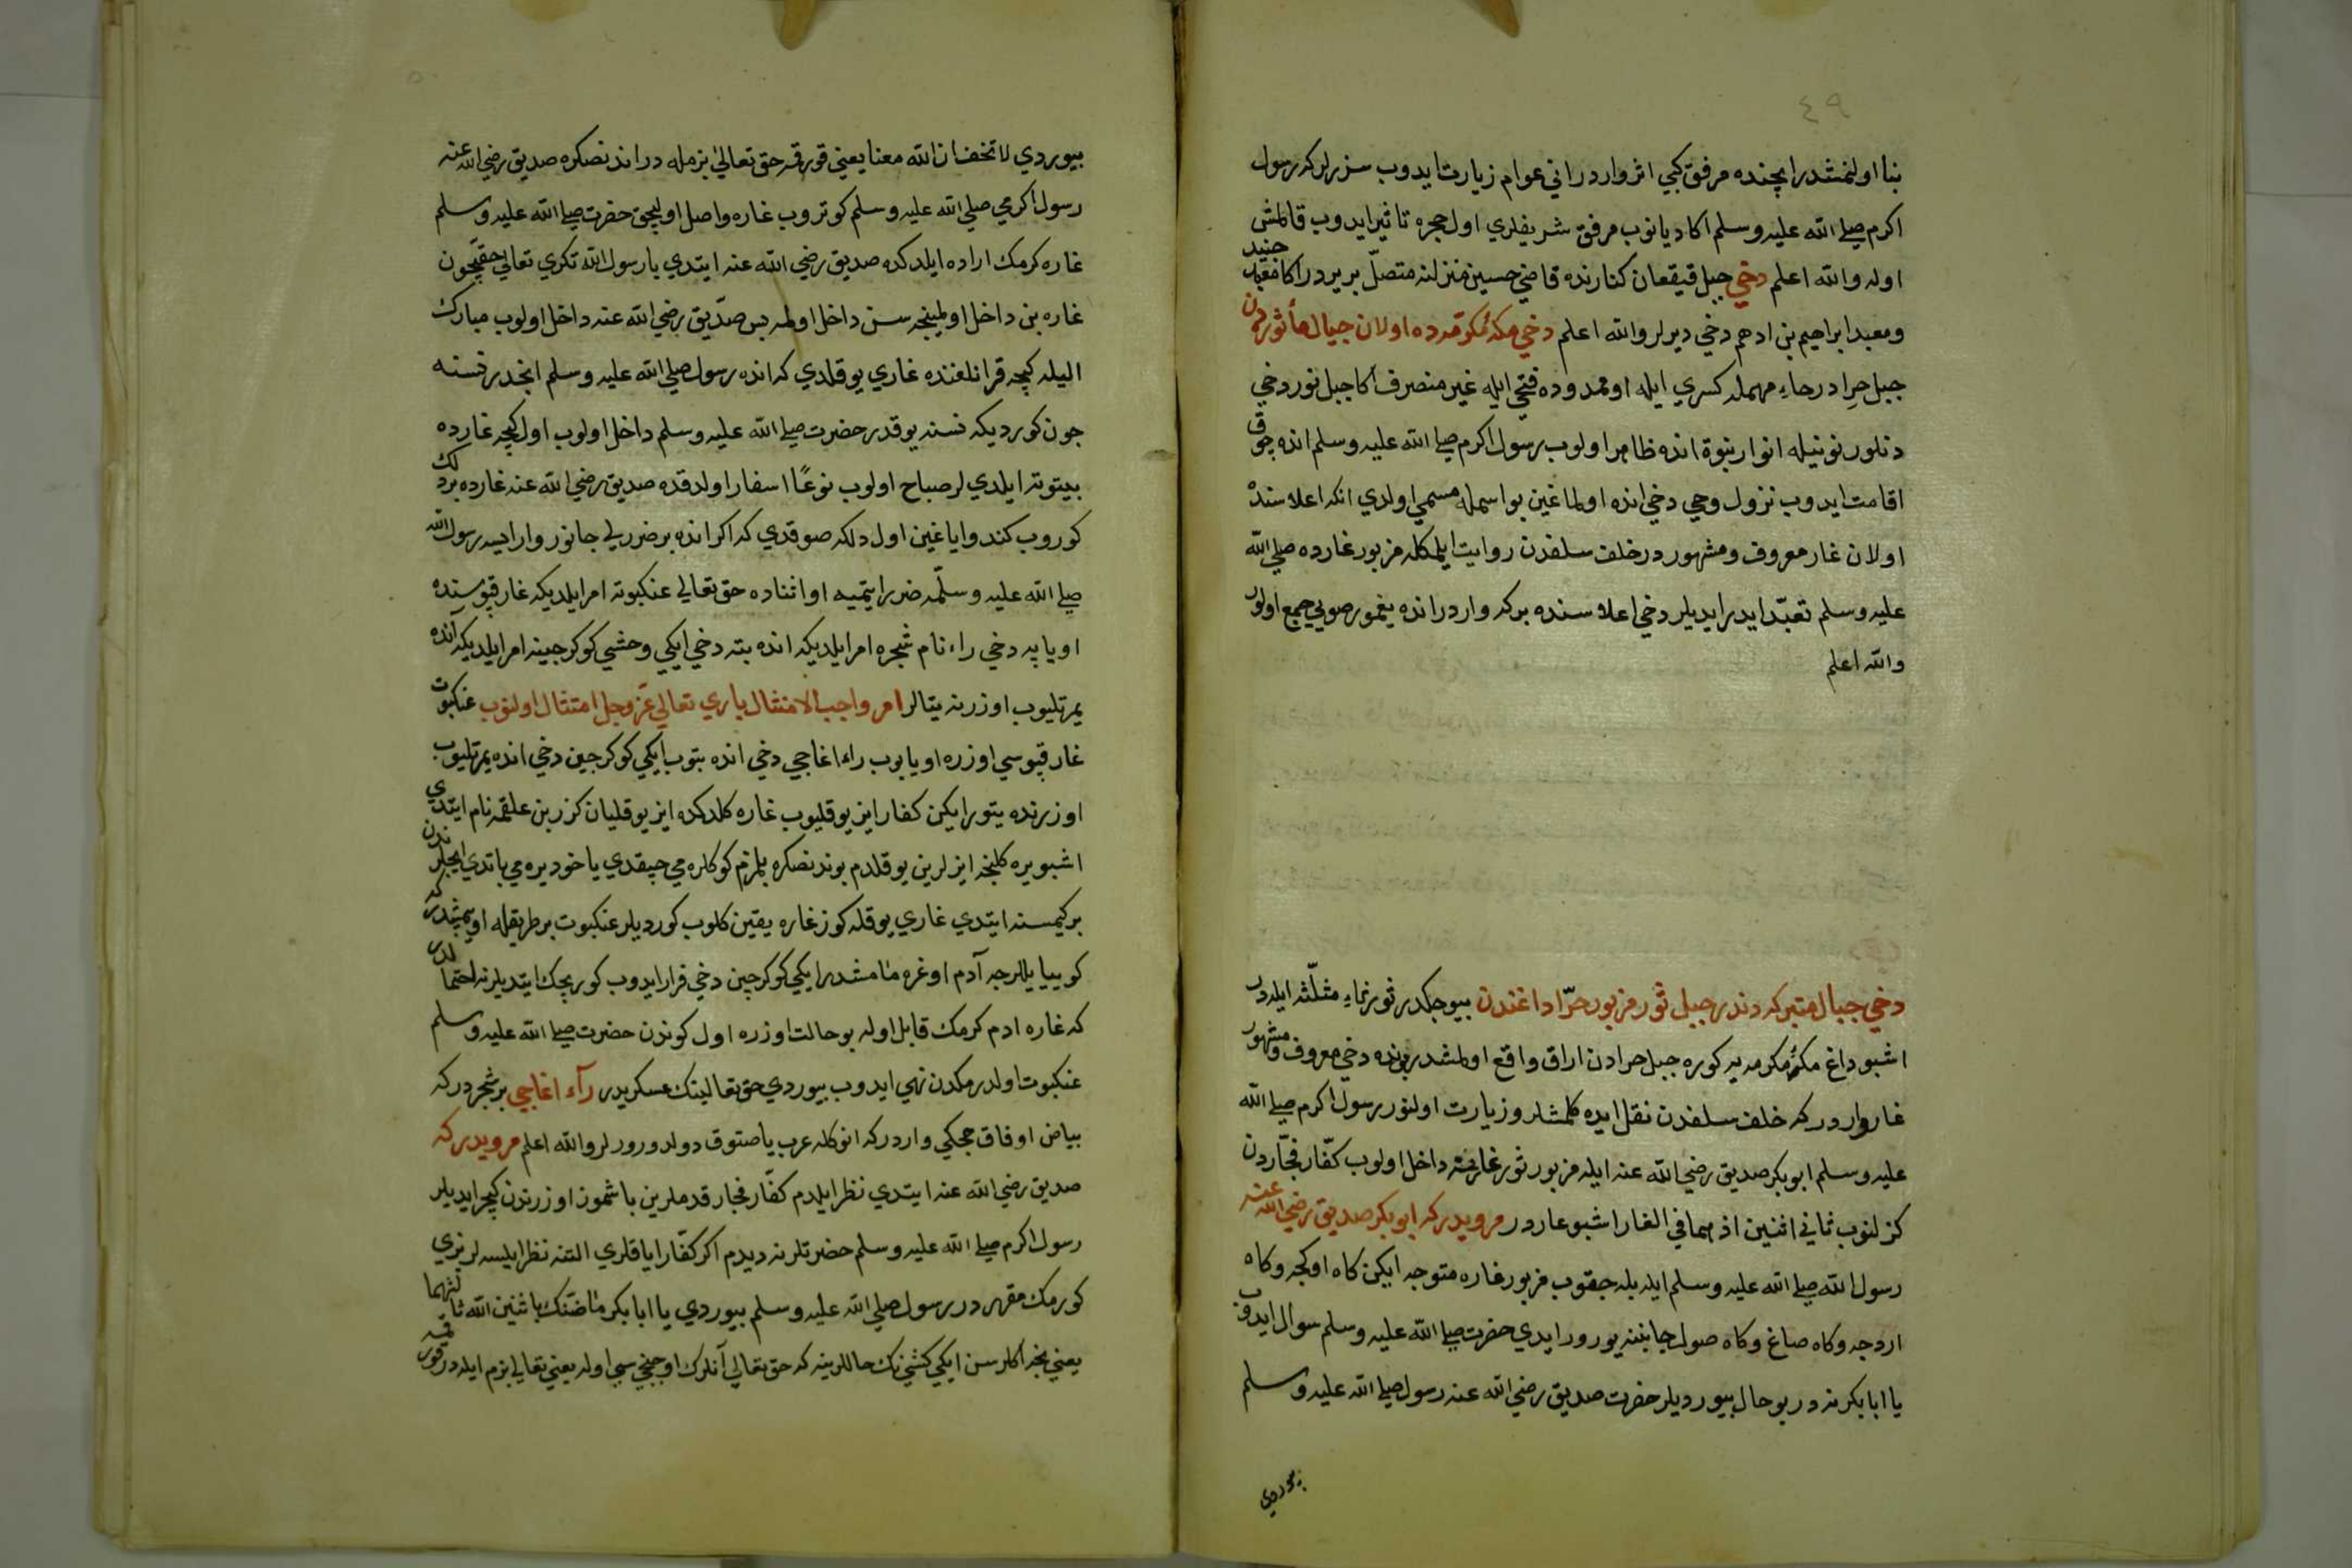 ٤٩
بنا اولنمشدر ایچنده مرفق کبي اثر واردر اني عوام زیارت ایدوب سزرلر که رسول
اکرم صلی الله علیه وسلم اکا دیانوب مرفق شریفلري اول حجره تاثیر ایدوب قالمش
اوله والله اعلم دخي جبل قیقعان کنارنده قاضي حسین منزلنه متصل بر یردر اکا معبد جنید
ومعبد ابراهیم بن ادهم دخي دیرلر والله اعلم دخي مکهٔ مکرمه ده اولان جبال مأثوردن
جبل حرا در حاء مهمله کسري ایله او ممدوده فتحي ایله غیر منصرف اکا جبل نور دخي
دنلور نونیله انوار نبوة انده ظاهر اولوب رسول اکرم صلی الله علیه وسلم انده چوق
اقامت ایدوب نزول وحي دخي انده اولماغین بو اسمله مسمي اولدي انک اعلاسنده
اولان غار معروف ومشهور در خلف سلفدن روایت ایلمکله مزبور غارده صلی الله
علیه وسلم تعبد ایدر ایدیلر دخي اعلاسنده برکه واردر انده یغمور صویي جمع اولور
والله اعلم
دخي جبال متبرکه دندر جبل ثور مزبور حرّا داغندن بیوجکدر ثور ثاء مثلّثه ایله در
اشبو داغ مکهٔ مکرمه یه کوره جبل حرادن اراق واقع اولمشدر بونده دخي معروف ومشهور
غار واردر که خلف سلفدن نقل ایده کلمشلر وزیارت اولنور رسول اکرم صلی الله
علیه وسلم ابو بکر صدیق رضي الله عنه ایله مزبور ثور غارینه داخل اولوب کفّار فجّاردن
کزلنوب ثاني اثنین اذ هما في الغار اشبو غار در مرویدر که ابو بکر صدیق رضي الله عنه
رسول الله صلی الله علیه وسلم ایله بله جقوب مزبور غاره متوجه ایکن کاه اوکجه وکاه
اردجه وکاه صاغ وکاه صول جانبنه یورر ایدي حضرت صلی الله علیه وسلم سوال ایدوب
یا ابا بکر نه در بو حال بیوردیلر حضرت صدیق رضي الله عنه رسول صلی الله علیه وسلم
بیوردي
بیوردي لا تخف ان الله معنا یعني قورقمه حق تعالی بزمله در اندنصکره صدیق رضي الله عنه
رسول اکرمي صلی الله علیه وسلم کوتروب غاره واصل اولیجق حضرت صلی الله علیه وسلم
غاره کرمک اراده ایلدکده صدیق رضي الله عنه ایتدي یا رسول الله تکري تعالي حقیچون
غاره بن داخل اولمینجه سن داخل اولمه بس صدّیق رضي الله عنه داخل اولوب مبارک
الیله کیجه قرانلغنده غاري یوقلدي که انده رسول صلی الله علیه وسلم انجدر نسنه
چون کوردیکه نسنه یوقدر حضرت صلی الله علیه وسلم داخل اولوب اول کیجه غارده
بیتوته ایلدي لر صباح اولوب نوعًا اسفار اولدقده صدیق رضي الله عنه غارده بر دلک
کوروب کندو ایاغین اول دلکه صوقدي که اکر انده بر ضررلي جانور وار ایسه رسول الله
صلی الله علیه وسلّمه ضرر ایتمیه او اثناده حق تعالي عنکبوته امر ایلدیکه غار قپوسنده
اویا یه دخي راء نام شجره امر ایلدیکه انده بته دخي ایکي وحشي کوکرجینه امر ایلدیکه انده
یمرتلیوب اوزرنه یتالر امر واجب الامتثال باري تعالي عزّ وجل امتثال اولنوب عنکبوت
غار قپوسي اوزره اویایوب راء اغاجي دخي انده بتوب ایکي کوکرجین دخي انده یمرتلیوب
اوزرنده یتور ایکن کفار ایز یوقلیوب غاره کلدکده ایز یوقلیان کرز بن علقمه نام ایتدي
اشبو یره کلنجه ایزلرین یوقلدم بوندنصکره بلمزم کوکلره مي چیقدي یاخود یره مي باتدي ایچلرندن
بر کیمسنه ایتدي غاري یوقله کوز غاره یقین کلوب کوردیلر عنکبوت بر طریقله اویمشدر که
کوییا ییللرجه آدم اوغرامامشدر ایکي کوکرچین دخي فرار ایدوب کوریجک ایتدیلر نه احتمالدر
که غاره ادم کرمک قابل اوله بو حالت اوزره اول کوندن حضرت صلی الله علیه وسلم
عنکبوت اولدرمکدن نهي ایدوب بیوردي حق تعالینک عسکریدر رآء اغاجي بر شجردر که
بیاض اوفاق چجکي واردر که انوکله عرب یاصتوق دولدورورلر والله اعلم مرویدر که
صدیق رضي الله عنه ایتدي نظر ایلدم کفّار فجار قدملرین باشموز اوزرندن کچر ایدیلر
رسول اکرم صلی الله علیه وسلم حضرتلرنه دیدم اکر کفّار ایاقلري التنه نظر ایلسه لر بزي
کورمک مقرر در رسول صلی الله علیه وسلم بیوردي یا ابا بکر ما ظنّک باثنین الله ثالثهما
یعني نجه اکلرسن ایکي کشینک حاللرینه که حق تعالي آنلرک اوچنجي سي اوله یعني تعالي بزم ایله در قورقمه